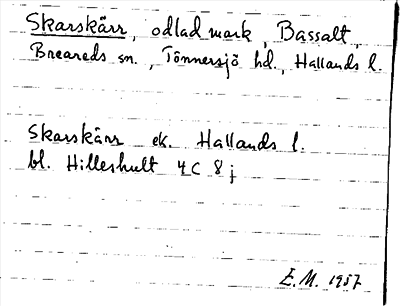 Skarskärr, odlad mark, Bassalt,
Breareds sn., Tönnersjö hd., Hallands l.
Skarskärr ek. Hallands l.
bl. Hilleshult 4C 8j
E.M. 1957